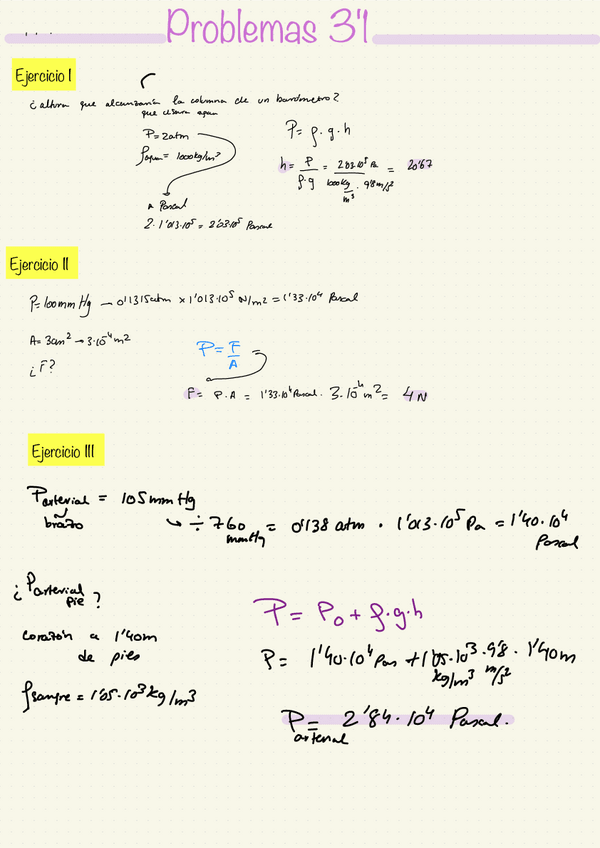 Problemas 3'1
Ejercicio I
¿altura que alcanzaría la columna de un barómetro?
que usara agua
P=2atm
ρagua= 1000kg/m³
a Pascal
2·1'013·10⁵ = 2'03·10⁵ Pascal
P= ρ·g·h
h= P/ρ·g = 2'03·10⁵ Pa / 1000kg/m³ · 9'8m/s² = 20'67
Ejercicio II
P=100mmHg → 0'1315atm ×1'013·10⁵ N/m2 = 1'33·10⁴ Pascal
A= 3cm² → 3·10⁻⁴m2
¿F?
P= F/A =
F= P.A = 1'33·10⁴ Pascal. 3·10⁻⁴m² = 4N
Ejercicio III
Parterial = 105mmHg
brazo
↳ ÷ 760 mmHg = 0'138 atm · 1'013·10⁵ Pa = 1'40·10⁴ Pascal
¿Parterial pie?
corazón a 1'40m
de pies
ρsangre = 1'05·10³ kg/m³
P= P₀ + ρ·g·h
P= 1'40·10⁴ Pas + 1'05·10³ kg/m³ · 9'8 m/s² · 1'40m
P arterial = 2'84·10⁴ Pascal.